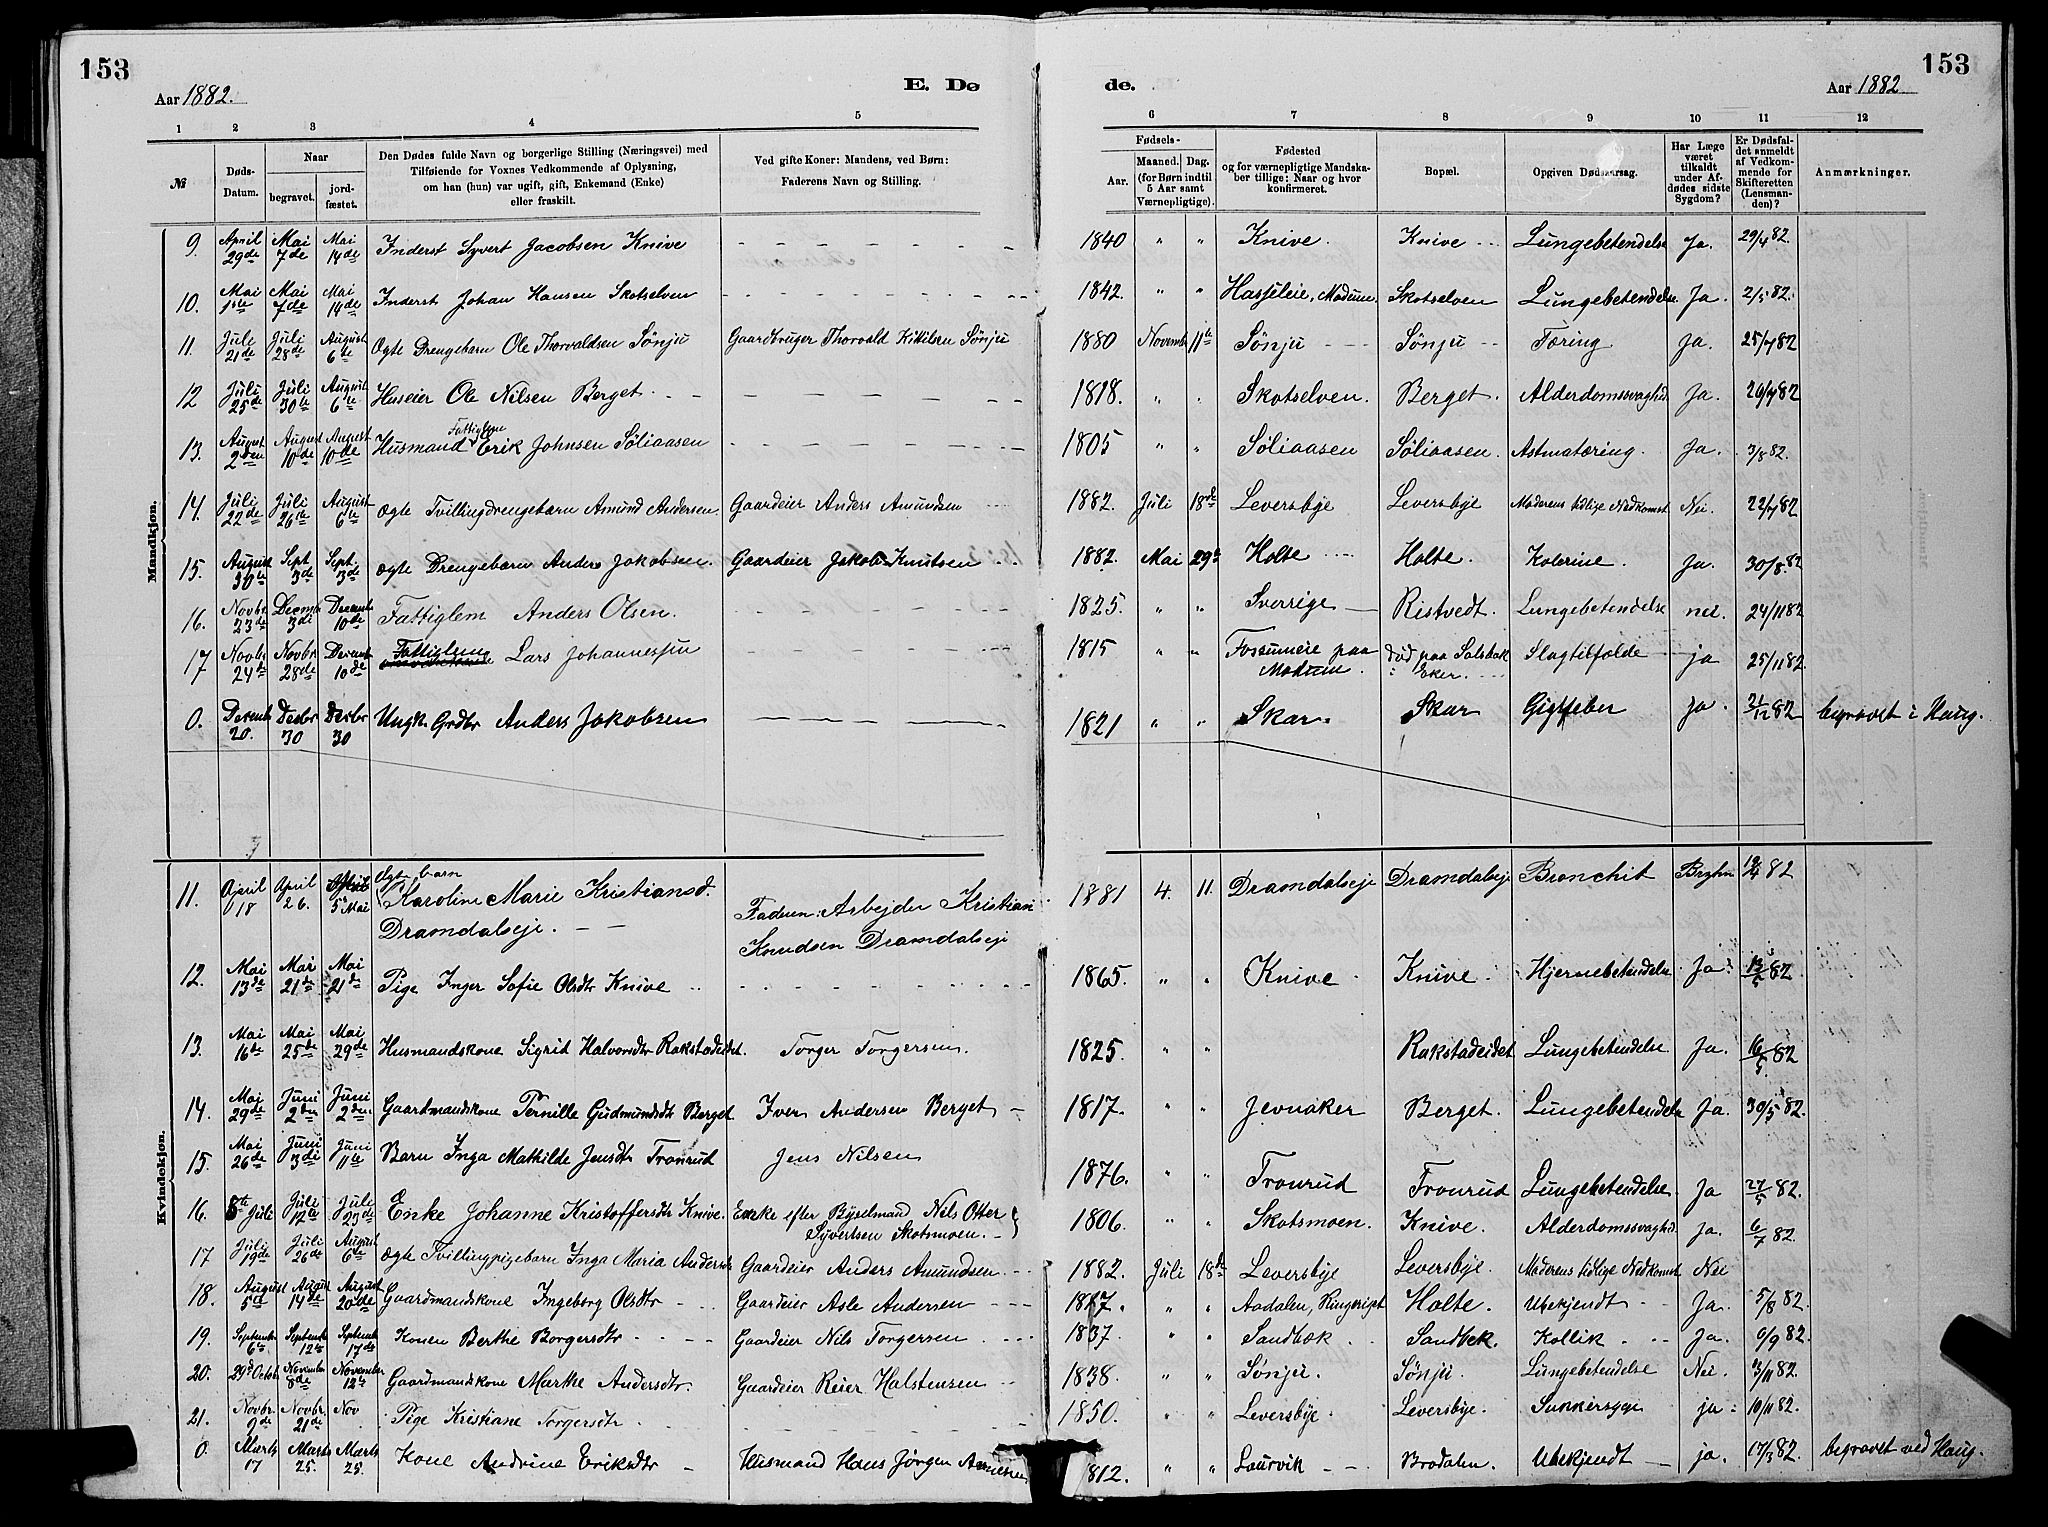 153
153
Aar 1882.
E. Dø
de.
Aar 1882
1 2 3 4 5 6 7 8 9 10 11 12
№
Døds-Datum.
Naar
begravet.
jord-fæstet.
Den Dødes fulde Navn og borgerlige Stilling (Næringsvei) med
Tilføiende for Voxnes Vedkommende af Oplysning,
om han (hun) var ugift, gift, Enkemand (Enke)
eller fraskilt.
Ved gifte Koner: Mandens, ved Børn:
Faderens Navn og Stilling.
Fødsels-
Aar.
Maaned. Dag.
(for Børn indtil
5 Aar samt
Værnepligtige).
Fødested
og for værnepligtige Mandska-
ber tillige: Naar og hvor
konfirmeret.
Bopæl.
Opgiven Dødsaarsag.
Har Læge
været
tilkaldt
under Af-
dødes sidste
Sygdom?
Er Dødsfal-
det anmeldt
af Vedkom-
mende for
Skifteretten
(Lensman-
den)?
Anmærkninger.
Mandkjøn.
9. April 29de Mai 7de Mai 14de Inderst Syvert Jacobsen Knive 1840 " " Knive. Knive Lungebetendelse Ja. 29/4 82.
10. Mai 1ste Mai 7de Mai 14de Inderst Johan Hansen Skotselven 1842. " " Hasseleie, Modum. Skotselven Lungebetendelse Ja. 2/5 82.
11. Juli 21de Juli 28de August 6te Ægte Drengebarn Ole Thorvaldsen Sønju Gaardbruger Thorvald Kittilsen Sønju 1880 Novemb 11te Sønju Sønju Tæring Ja. 25/7 82
12 Juli 25de Juli 30te August 6te Huseier Ole Nilsen Berget 1818. " " Skotselven. Berget. Alderdomssvaghd. Ja. 26/7 82
13. August 2den August 10de August 10de Husmand Fattiglem Erik Johnsen Søliaasen 1805 " " Søliaasen Søliaasen. Astmatæring. Ja. 3/8 82.
14. Juli 22de Juli 26te August 6te Ægte Tvillingdrengebarn Amund Andersen. Gaardeier Anders Amundsen 1882. Juli 18de Leversbye Leversbye Moderens tidlige Nedkomst Nei. 22/7 82
15. August 30te Sept 3de Sept. 3de Ægte Drengebarn Anders Jakobsen. Gaardeier Jakob Knutsen 1882. Mai 29de Holte Holte. Kolerine. Ja. 30/8. 82
16. Novbr. 23de Decmb 3di Decemb 10de Fattiglem Anders Olsen. 1825. " " Sverrige Ristvedt. Lungebetendelse nei. 24/11 82
17 Novbr 24de Novbr. 28de Decemb 10de Fattiglem Lars Johannessen 1815 " " Fossumeie paa Modum. død paa Solsbak Eker. Slagtilfælde ja 25/11 82.
0. Decemb 20. Decbr 30 Decbr 30 Ungk. Grdbr Anders Jakobsen 1821 " " Skar. Skar Gigtfeber ja. 21/12 82 begravet i Haug.
Kvindekjøn.
11. April 18 April 26. April 5te Mai Ægte barn Karoline Marie Kristiansd. Dramdalseje. Faderen: Arbejder Kristian Knudsen Dramdalseje 1881 4. 11. Dramdalseje Dramdalseje Bronchit Bryhn 19/4 82
12. Mai 13de Mai 21de Mai 21de Pige Inger Sofie Olsdtr Knive 1865. " " Knive Knive. Hjernebetendelse Ja. 13/5 82
13. Mai 16de Mai 25de Mai 29de Husmandskone Sigrid Halvorsdtr Rakstadeidet. Torger Torgersen. 1825. " " Rakstadeidet Lungebetendelse Ja. 16/5 82
14. Mai 29de Juni 2den Juni 2den Gaardmandskone Pernille Gudmundsdtr Berget Iver Andersen Berget 1817. " " Jevnaker Berget. Lungebetendelse Ja. 30/5 82.
15. Mai 26de Juni 3di Juni 11te Barn Inga Mathilde Jensdtr Tronrud Jens Nilsen 1876. " " Tronrud Tronrud Lungebetendelse. Ja 27/5 82.
16. 5te Juli Juli 12te Juli 23de Enke Johanne Kristoffersdtr Knive. Enke efter Bøsselmand Nils Otter Syvertsen Skotsmoen. 1806. " " Skotsmoen. Knive. Alderdomssvaghd. Ja. 6/7 82.
17 Juli 19de Juli 26de August 6te Ægte Tvillingpigebarn Inga Maria Andersdtr Gaardeier Anders Amundsen 1882. Juli 18de Leversbye Leversbye. Moderens tidlige Nedkomst Nei
18. August 5te August 14de August 20de Gaardmandskone Ingeborg Olsdtr Gaardeier Asle Andersen 1817. " " Aadalen, Ringerige Holte. Ubekjendt Ja. 5/8 82.
19. Septemb 6te Septemb 12te Septemb 17de Konen Berthe Borgersdtr Gaardeier Nils Torgersen 1837. " " Sandbæk. Sandbek. Kollik. Ja. 6/9 82.
20. 29de Octob November 8de November 12te Gaardmandskone Marthe Andersdtr. Gaardeier Reier Halstensen 1838. " " Sønju. Sønju. Lungebetendelse Nei. 3/11 82.
21. Novbr. 9de Novbr. 21de Nov Pige Kristiane Torgersdtr 1850. " " Leversbye. Leversbye. Sukkersyge ja. 10/11 82.
0. Marts 17 Marts 25. Marts 25. Kone Andrine Eriksdtr Husmand Hans Jørgen 1812. " " Laurvik Brodalen. Ubekjendt ja. 17/3 82. begravet ved Haug.